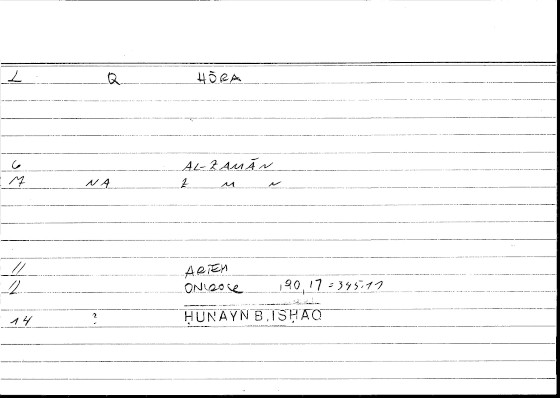 2 Q HŌRA
6 AL-ZAMĀN
7 NA Z M N
11 ARTEM
12 ONIROCR 190,17 = 345.11
14 ? ḤUNAYN B. ISḤAQ